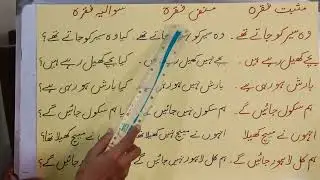 مثبت فقرہ منفی فقرہ سوالیہ فقرہ
وہ سیر کو جاتے تھے ۔ وہ سیر کو جاتے تھے ۔ کیا وہ سیر کو جاتے تھے ؟
بچے کھیل رہے ہیں ۔ بچے نہیں کھیل رہے ۔ کیا بچے کھیل رہے ہیں ؟
بارش ہو رہی ہے ۔ بارش نہیں ہو رہی ۔ کیا بارش ہو رہی ہے ؟
ہم سکول جائیں گے ۔ ہم سکول نہیں جائیں گے ۔ کیا ہم سکول جائیں گے ؟
انہوں نے میچ کھیلا ۔ انہوں نے میچ نہیں کھیلا ۔ کیا انہوں نے میچ کھیلا تھا ؟
ہم کل لاہور جائیں گے ۔ ہم کل لاہور نہیں جائیں گے ۔ کیا ہم کل لاہور جائیں گے ؟